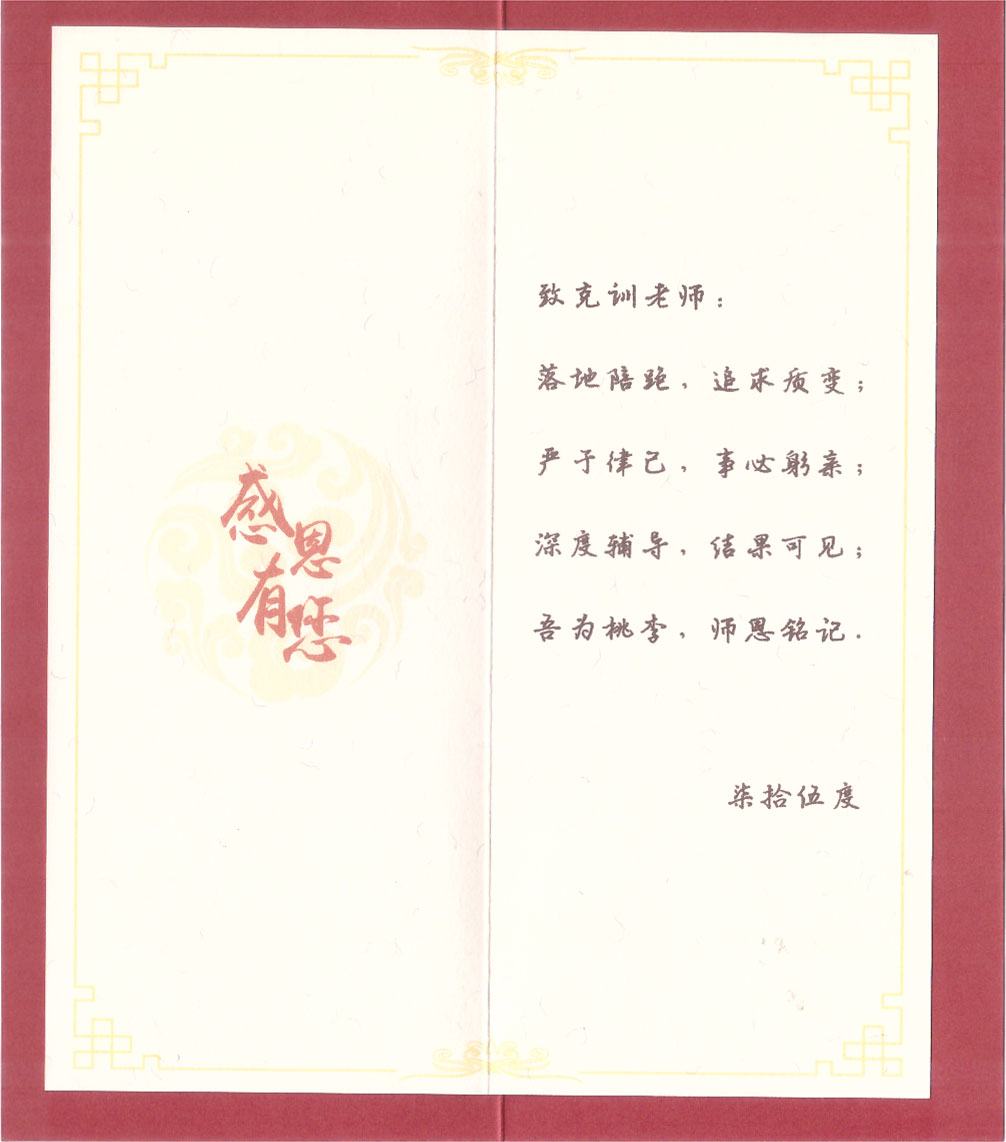 感恩
有您
致克训老师：
落地陪跑，追求质变；
严于律己，事必躬亲；
深度辅导，结果可见；
吾为桃李，师恩铭记.
柒拾伍度